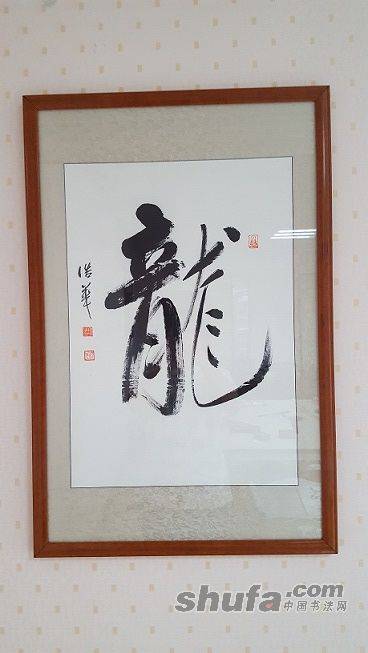 龍
浩華
shufa.com
中国书法网